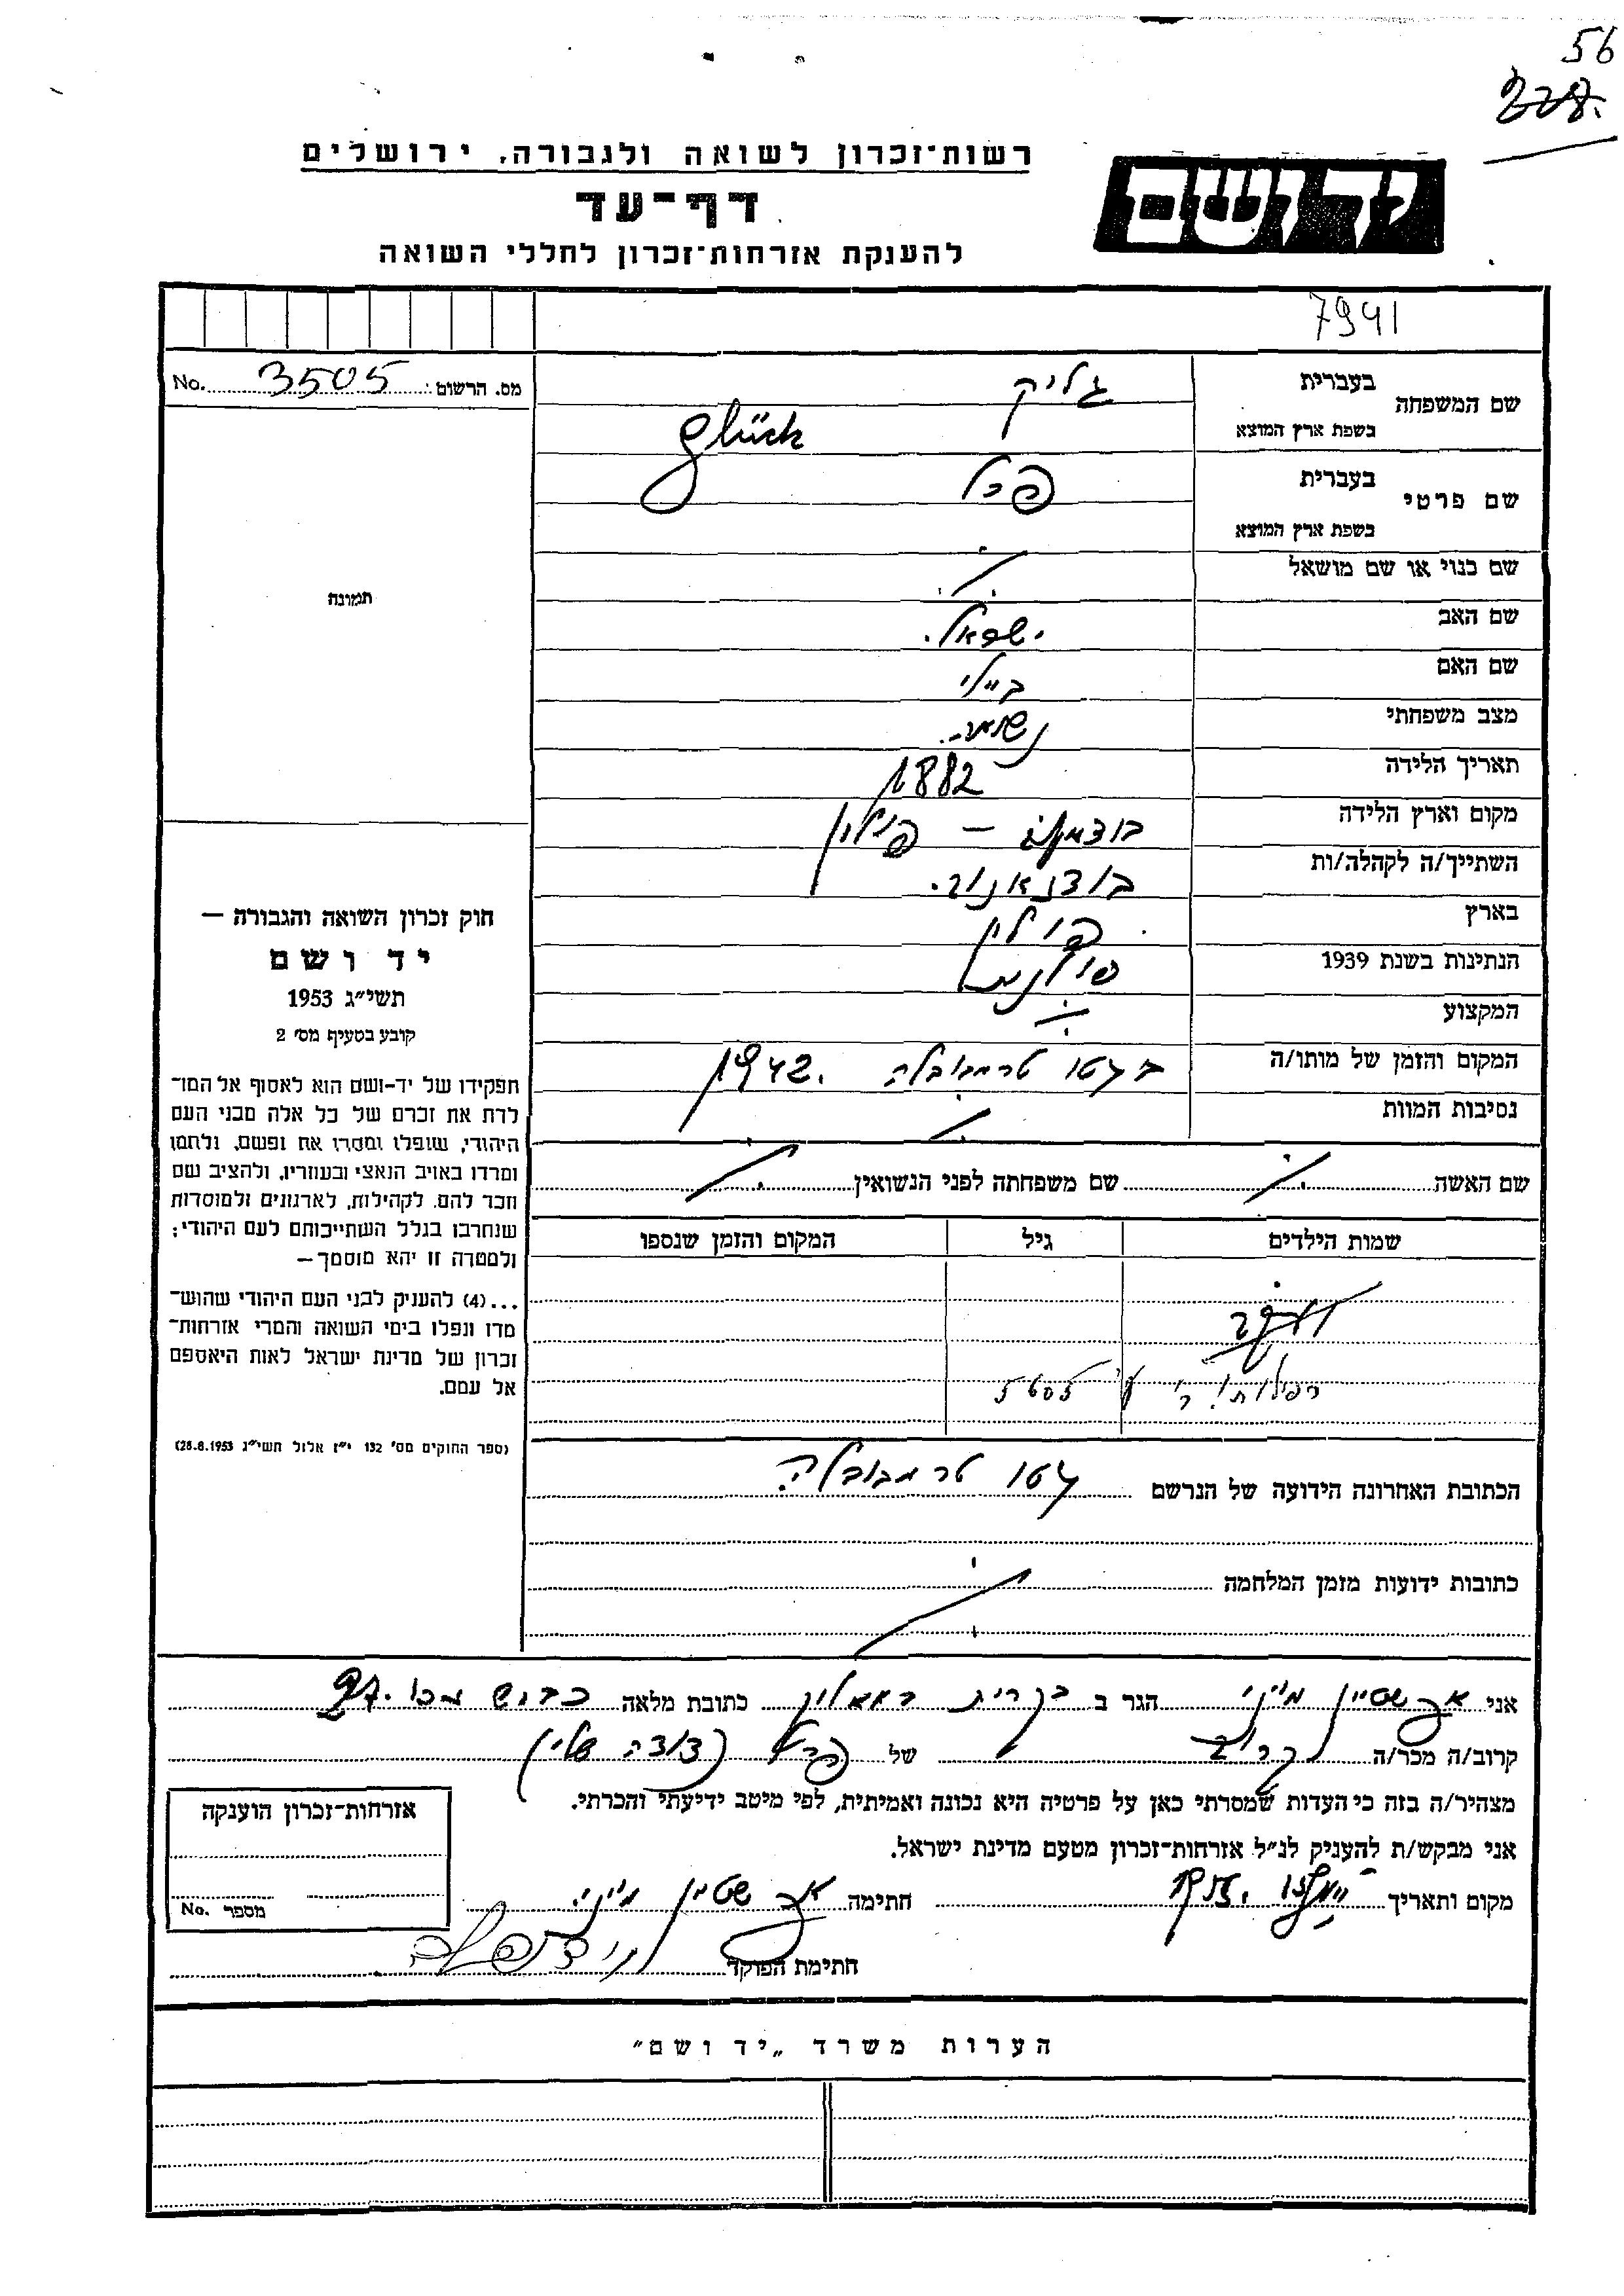 56
228.
רשות־זכרון לשואה ולגבורה, ירושלים
יד ושם
דף־עד
להענקת אזרחות־זכרון לחללי השואה
7941
מס. הרשום 3505 No.
שם המשפחה
בעברית גליק
בשפת ארץ המוצא Glück
שם פרטי
בעברית פרל
בשפת ארץ המוצא
שם כנוי או שם מושאל
שם האב ישראל.
שם האם ביילי
מצב משפחתי נשואה.
תאריך הלידה 1882
מקום וארץ הלידה – פולין
השתייך/ה לקהלה/ות
בארץ פולין
הנתינות בשנת 1939 פולנית
המקצוע
המקום והזמן של מותו/ה בגטו טרמבובלה. 1942
נסיבות המוות
שם האשה שם משפחתה לפני הנשואין
שמות הילדים גיל המקום והזמן שנספו
הכתובת האחרונה הידועה של הנרשם גטו טרמבובלה
כתובות ידועות מזמן המלחמה
תמונה
חוק זכרון השואה והגבורה —
יד ושם
תשי״ג 1953
קובע בסעיף מס׳ 2
תפקידו של יד-ושם הוא לאסוף אל המו־
לדת את זכרם של כל אלה מבני העם
היהודי, שנפלו ומסרו את נפשם, נלחמו
ומרדו באויב הנאצי ובעוזריו, ולהציב שם
וזכר להם, לקהילות, לארגונים ולמוסדות
שנחרבו בגלל השתייכותם לעם היהודי;
ולמטרה זו יהא מוסמך—
...(4) להעניק לבני העם היהודי שהוש־
מדו ונפלו בימי השואה והמרי אזרחות־
זכרון של מדינת ישראל לאות היאספם
אל עמם.
(ספר החוקים מס׳ 132 י״ז אלול תשי״ג 28.8.1953)
אני שטיין הגר ב בקרית כתובת מלאה
קרוב/ה מכר/ה קרוב של פרל (דודה שלי)
מצהיר/ה בזה כי העדות שמסרתי כאן על פרטיה היא נכונה ואמיתית, לפי מיטב ידיעתי והכרתי.
אני מבקש/ת להעניק לנ״ל אזרחות־זכרון מטעם מדינת ישראל.
מקום ותאריך חתימה שטיין
חתימת הפוקד
אזרחות־זכרון הוענקה
מספר No.
הערות משרד „יד ושם״